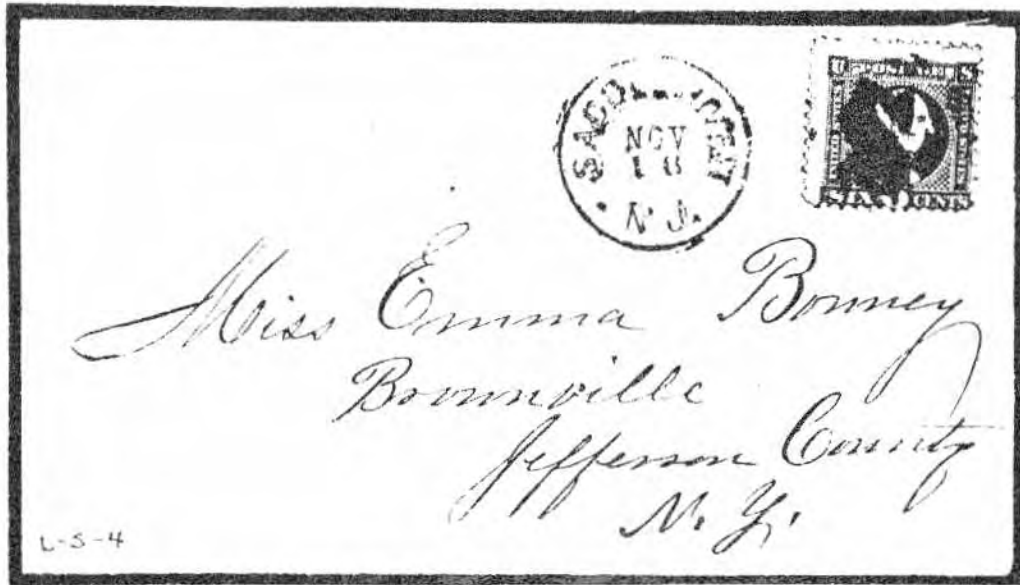 NOV
N. J.
U POSTAGE S
SIX CENTS
Miss Emma Bonney
Brownville
Jefferson County
N. Y.
L-S-4